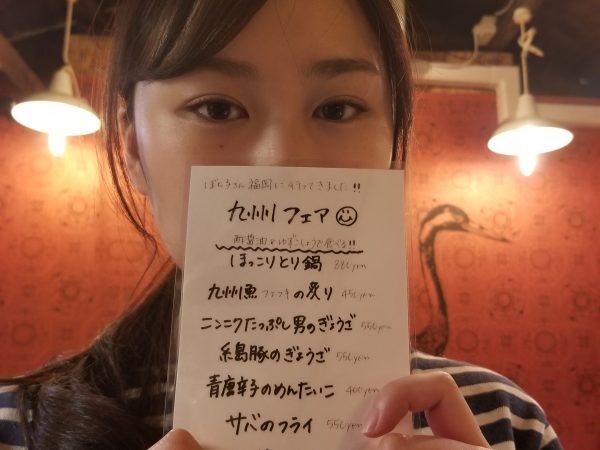 ぼたろさん福岡に行ってきました!!
九州フェア
酢醤油とゆずこしょうで食べる!!
ほっこりとり鍋 880yen
九州魚 の炙り 450yen
ニンニクたっぷし男のぎょうざ 550yen
糸島豚のぎょうざ 550yen
青唐辛子のめんたいこ 400yen
サバのフライ 550yen